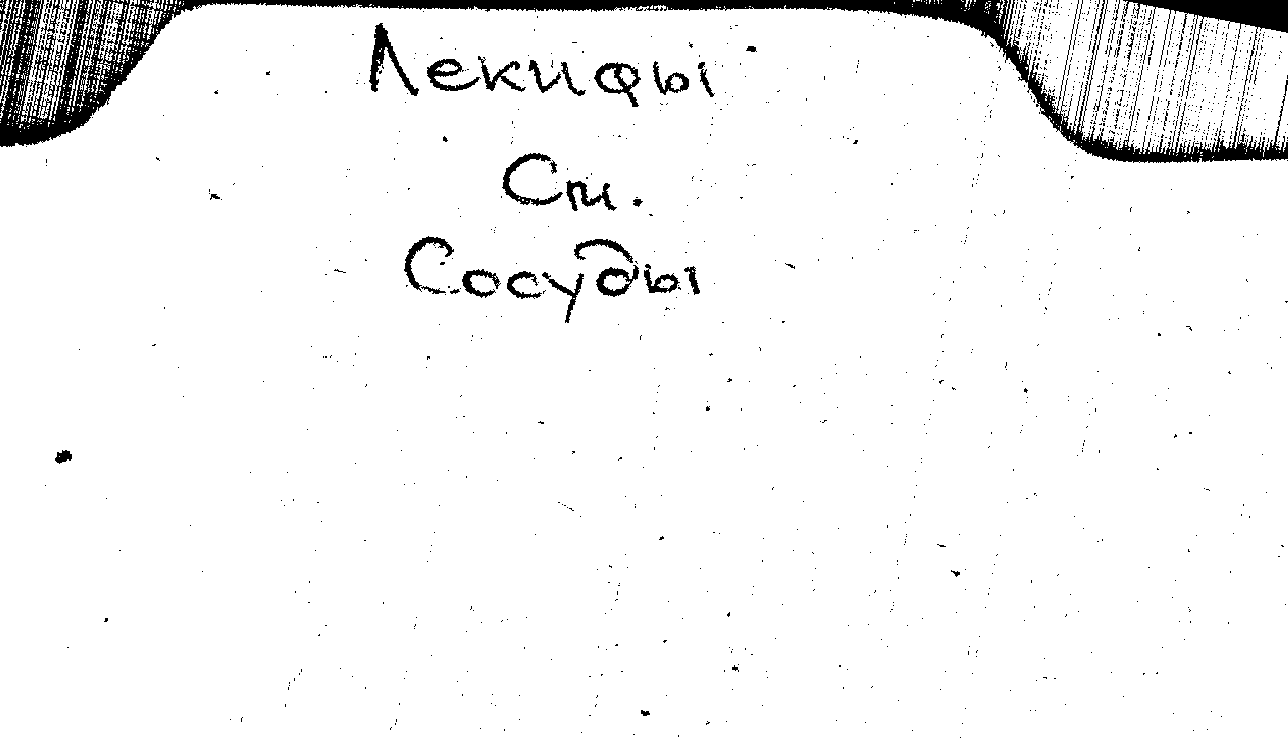 Лекифы
См.
Сосуды